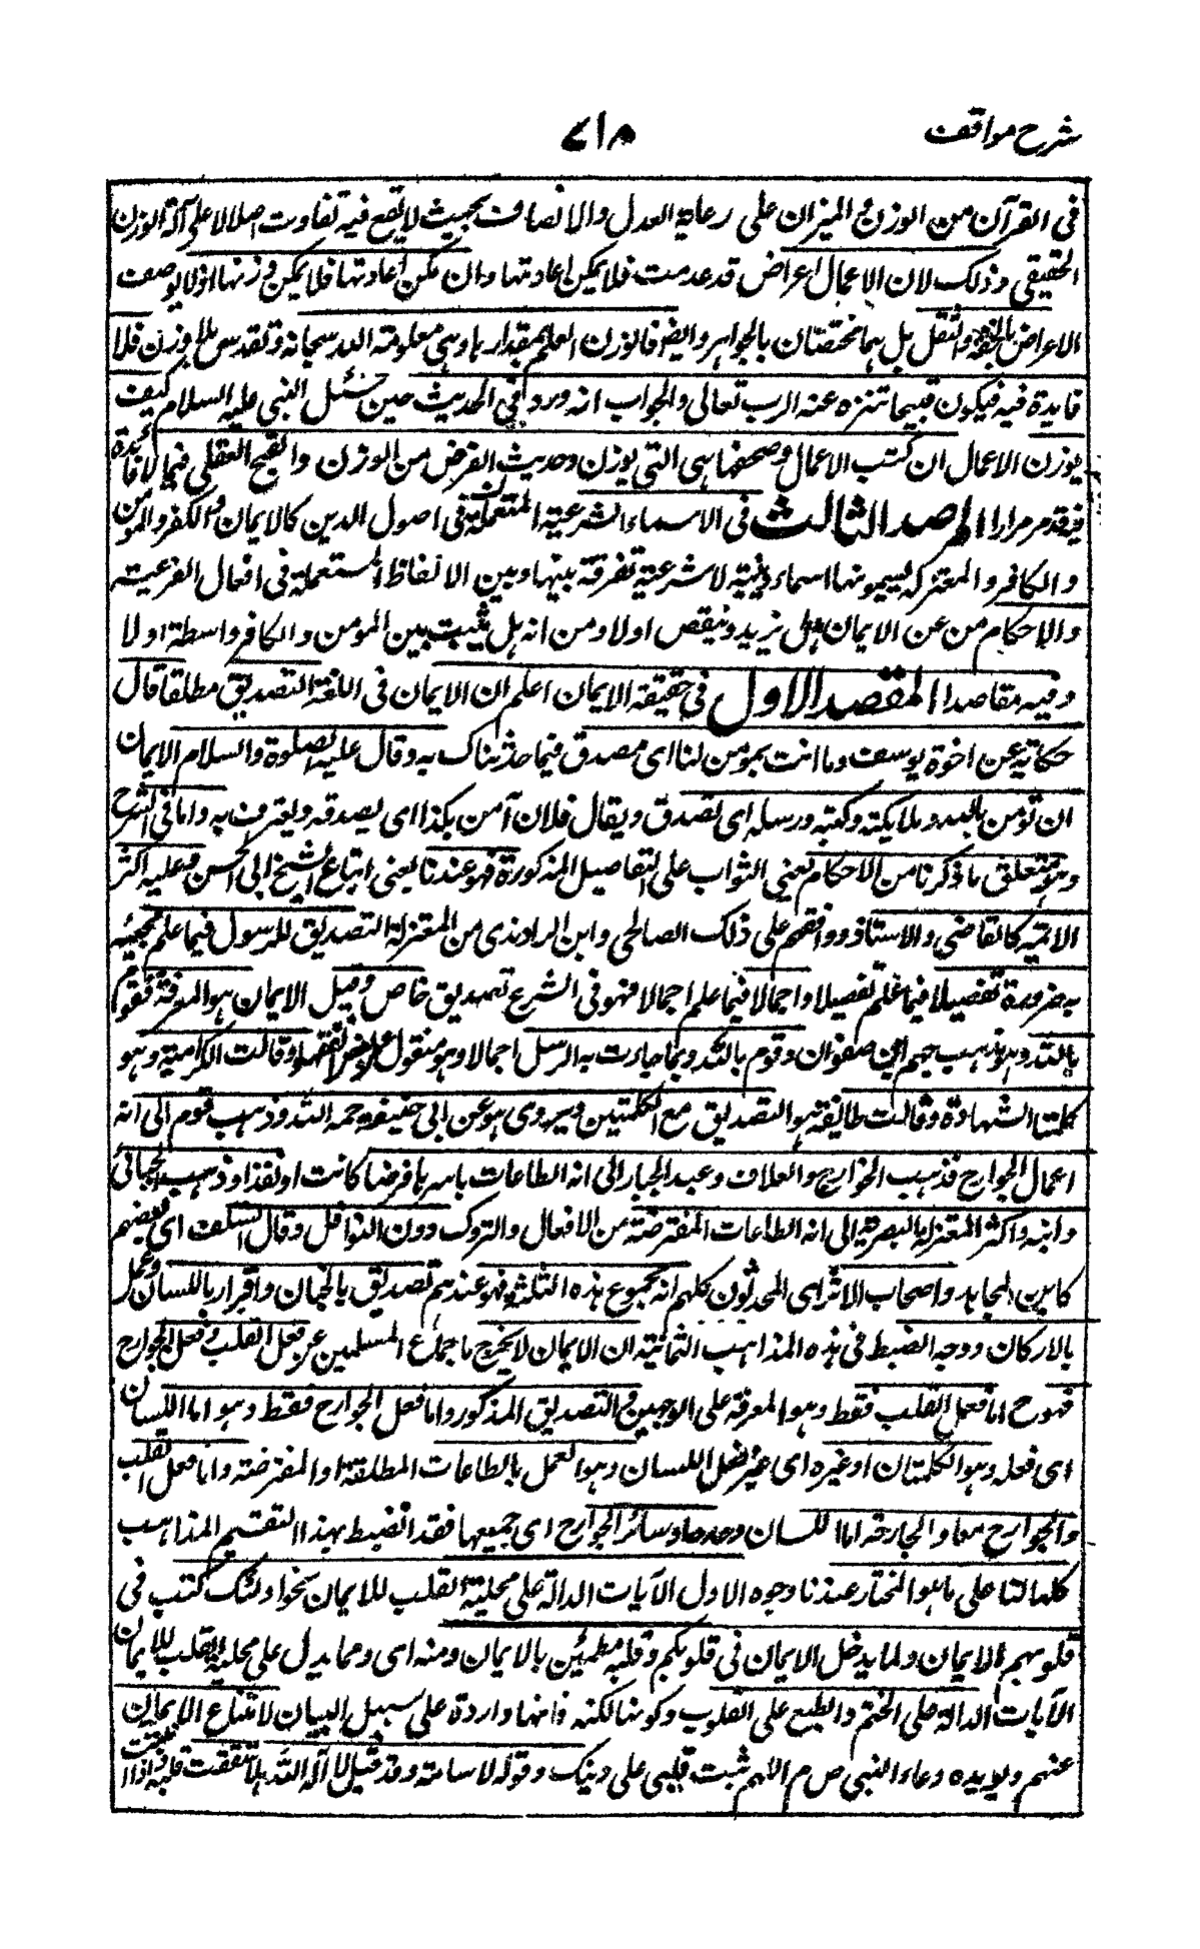 شرح مواقف
٧١٨
فى القرآن من الوزن والميزان على رعاية العدل والانصاف بحيث لا يقع فيه تفاوت اصلا لا على آلة الوزن
الحقيقى وذلك لان الاعمال اعراض قد عدمت فلا يمكن اعادتها وان امكن اعادتها فلا يمكن وزنها اذ لا يوصف
الاعراض بالخفة والثقل بل هما مختصتان بالجواهر وايضا فالوزن العلم بمقدارها وهى معلومة الله سبحانه وتقدس بلا وزن فلا
فايدة فيه فيكون قبيحا تنزه عنه الرب تعالى والجواب انه ورد فى الحديث حين سئل النبى عليه السلام كيف
يوزن الاعمال ان كتب الاعمال وصحفها هى التى يوزن وحديث الغرض من الوزن والقبح العقلى فيما لا فائدة
فيه قد مر مرارا المرصد الثالث فى الاسماء الشرعية المستعملة فى اصول الدين كالايمان والكفر والمومن
والكافر والمعتزلة يسمونها اسماء دينية لا شرعية تفرقة بينها وبين الالفاظ المستعملة فى افعال الفرعية
والاحكام من عن الايمان هل يزيد وينقص اولا ومن انه هل يثبت بين المؤمن والكافر واسطة اولا
وفيه مقاصد المقصد الاول فى حقيقة الايمان اعلم ان الايمان فى اللغة التصديق مطلقا قال
حكاية عن اخوة يوسف وما انت بمومن لنا اى مصدق فيما حدثناك به وقال عليه الصلوة والسلام الايمان
ان تؤمن بالله وملايكته وكتبه ورسله اى تصدق ويقال فلان آمن بكذا اى يصدقه ويعترف به واما فى الشرح
وهو متعلق ما ذكرنا من الاحكام يعنى الثواب على التفاصيل المذكورة فهو عندنا يعنى اتباع الشيخ ابى الحسن وعليه اكثر
الائمة كالقاضى والاستاذ ووافقهم على ذلك الصالحى وابن الراوندى من المعتزلة التصديق للرسول فيما علم مجيئه
به ضرورة تفصيلا فيما علم تفصيلا واجمالا فيما علم اجمالا فهو فى الشرع تصديق خاص وقيل الايمان هو المعرفة فقوم
بالله وهو مذهب جهم ابن صفوان وقوم بالله وبما جاءت به الرسل اجمالا وهو منقول عن بعض الفقهاء وقالت الكرامية وهو
كلمتا الشهادة وقالت طايفة هو التصديق مع الكلمتين ويروى هو عن ابى حنيفة رحمه الله وذهب قوم الى انه
اعمال الجوارح فذهب الخوارج والعلاف وعبد الجبار الى انه الطاعات باسرها فرضا كانت او نفلا وذهب الجبائى
وابنه واكثر المعتزلة البصرية الى انه الطاعات المفترضة من الافعال والتروك دون النوافل وقال السلف اى بعضهم
كابن المجاهد واصحاب الاثر اى المحدثون كلهم انه مجموع هذه الثلثة فهو عندهم تصديق بالجنان واقرار باللسان وعمل
بالاركان ووجه الضبط فى هذه المذاهب الثمانية ان الايمان لا يخرج باجماع المسلمين عن فعل القلب وفعل الجوارح
فهو ح اما فعل القلب فقط وهو المعرفة على الوجهين والتصديق المذكور واما فعل الجوارح فقط وهو اما اللسان
اى فعله وهو الكلمتان او غيره اى غير فعل اللسان وهو العمل بالطاعات المطلقة او المفترضة واما فعل القلب
والجوارح معا والجارحة اما اللسان وحدها وسائر الجوارح اى جميعها فقد انضبط بهذا التقسيم المذاهب
كلها لنا على ما هو المختار عندنا وجوه الاول الآيات الدالة على محلية القلب للايمان نحو اولئك كتب فى
قلوبهم الايمان ولما يدخل الايمان فى قلوبكم وقلبه مطمئن بالايمان ومنه اى ومما يدل على محلية القلب للايمان
الآيات الدالة على الختم والطبع على القلوب وكونها اكنة فانها واردة على سبيل البيان لامتناع الايمان
عنهم ويويده دعاء النبى ص م اللهم ثبت قلبى على دينك وقوله لاسامة وقد قتل لا اله الله هلا شققت قلبه واذا